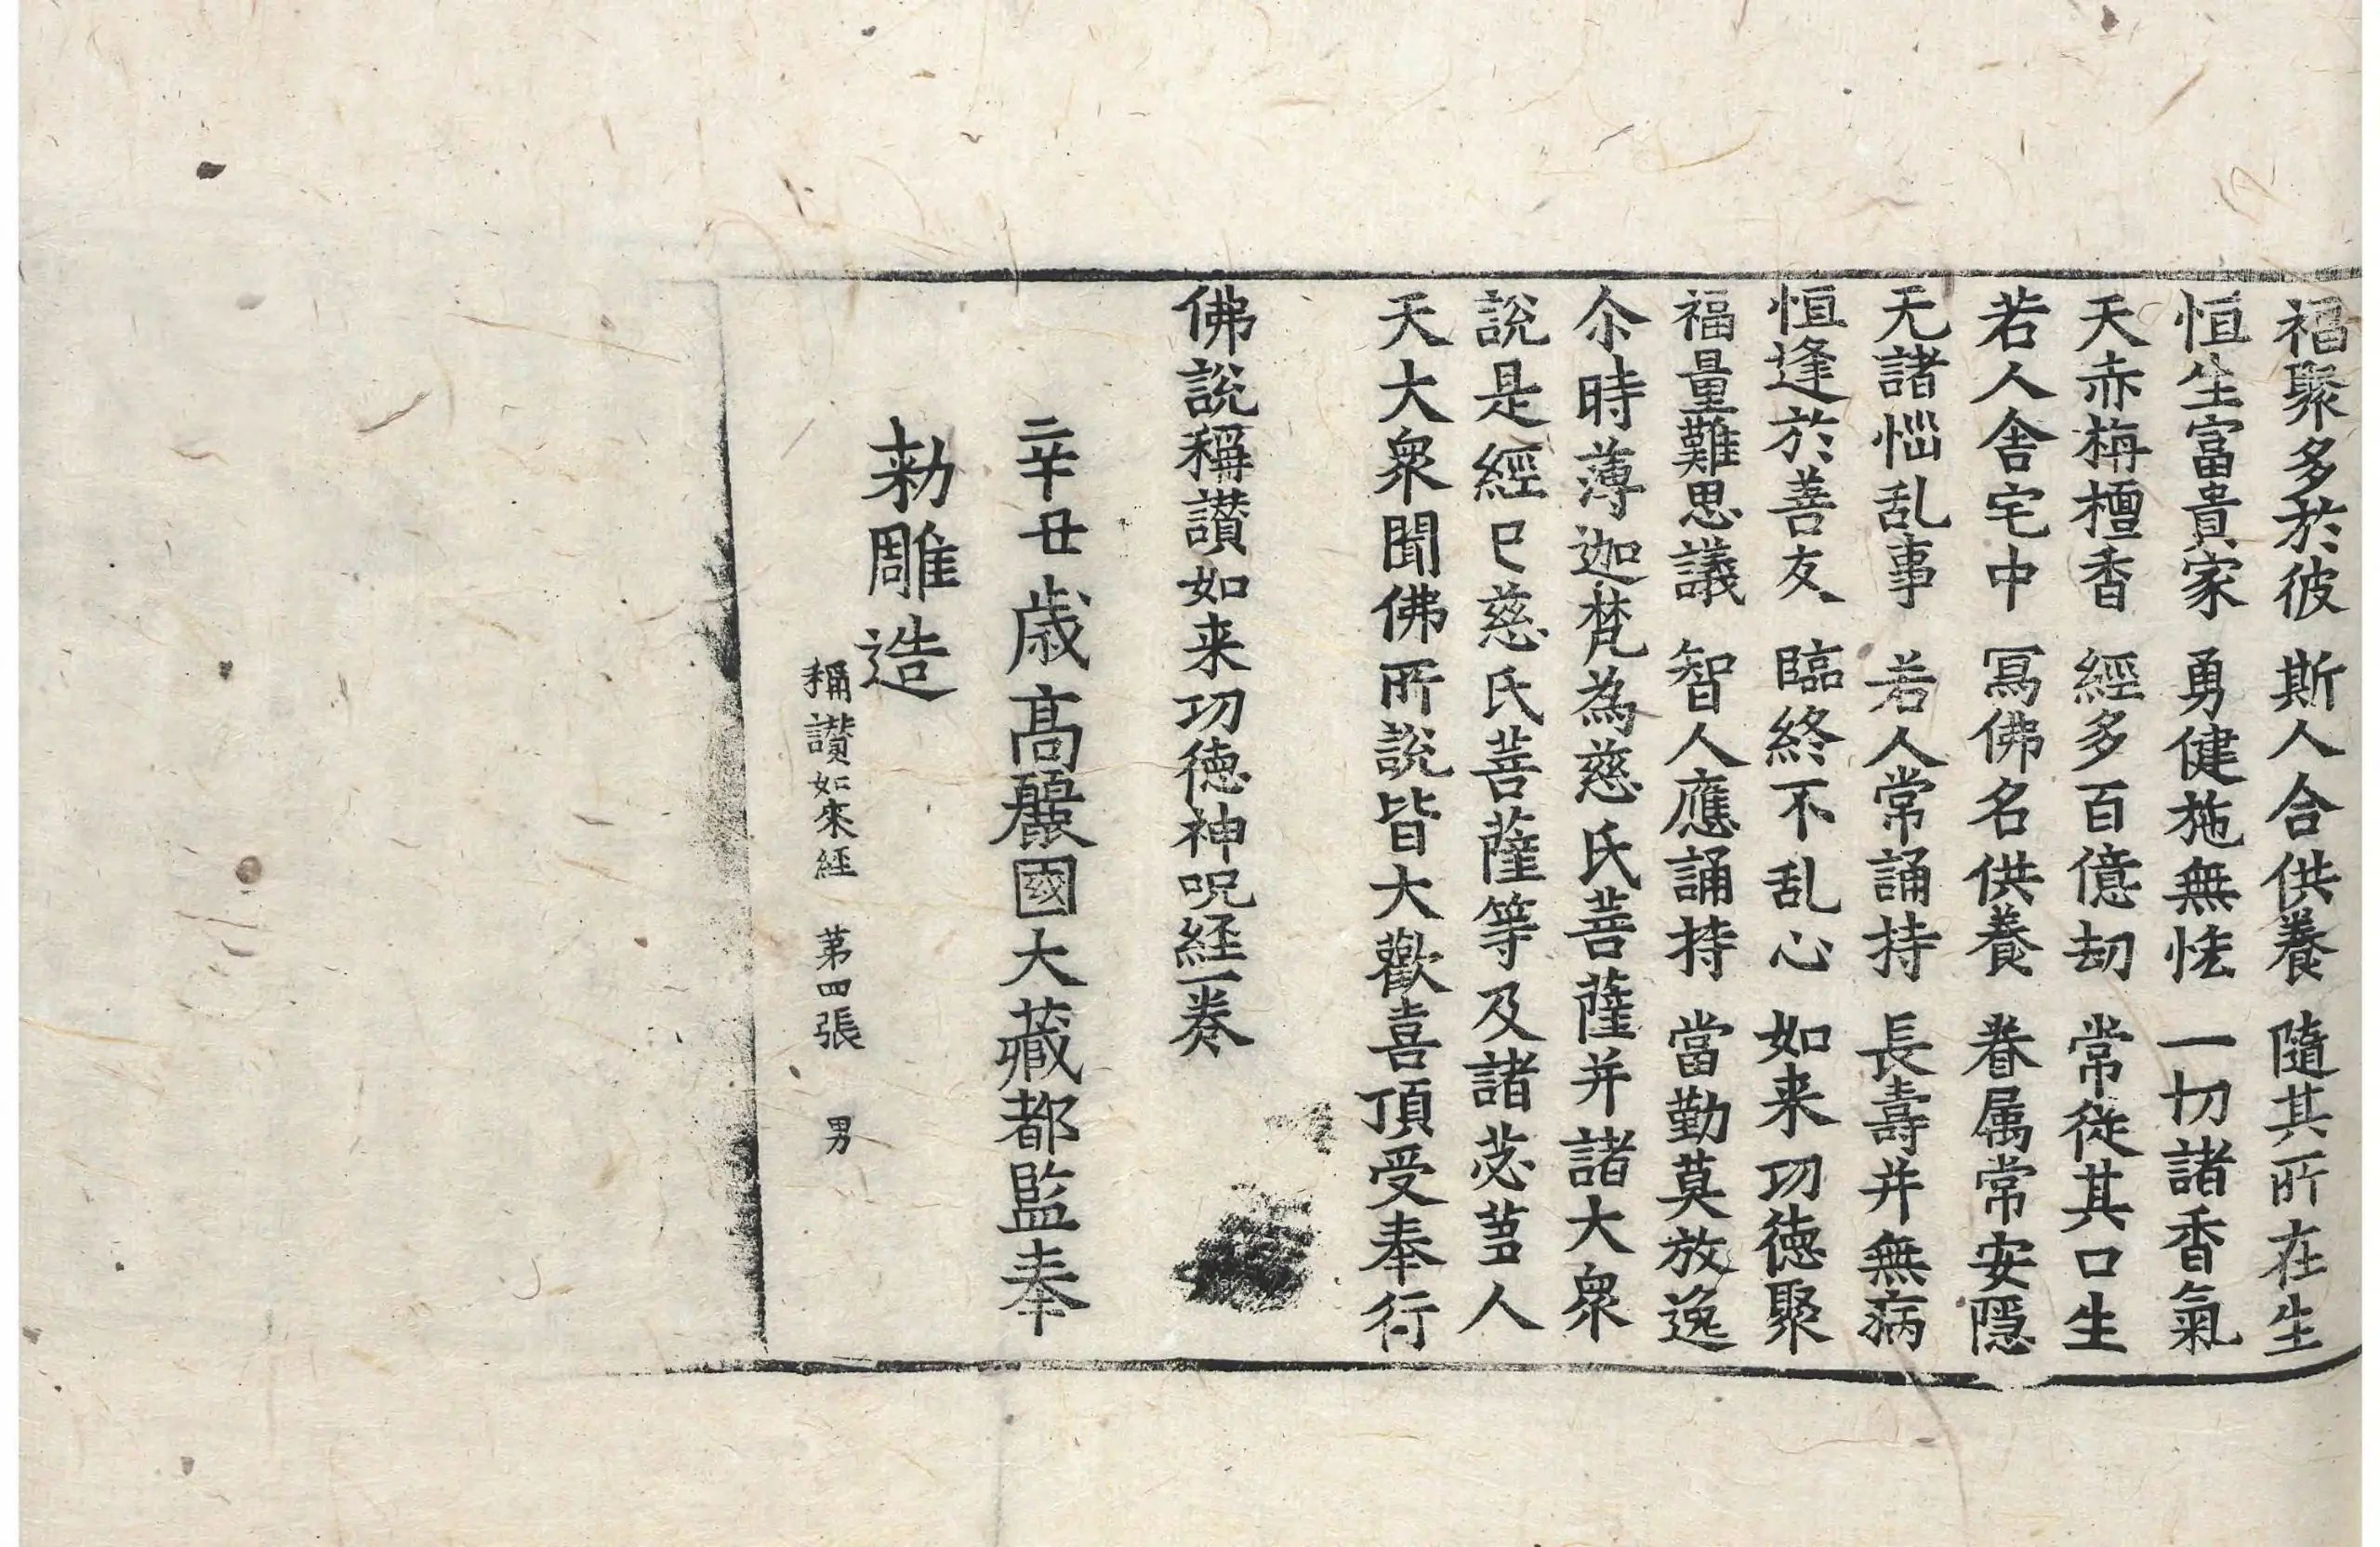 福聚多於彼　斯人合供養　隨其所在生
恒生富貴家　勇健施無恡　一切諸香氣
天赤栴檀香　經多百億劫　常從其口生
若人舍宅中　冩佛名供養　眷属常安隱
无諸惱乱事　若人常誦持　長壽并無病
恒逢於善友　臨終不乱心　如来功德聚
福量難思議　智人應誦持　當勤莫放逸
尒時薄迦梵為慈氏菩薩并諸大衆
說是經已慈氏菩薩等及諸苾蒭人
天大衆聞佛所說皆大歡喜頂受奉行
佛說稱讃如来功德神呪経一卷
辛丑歳高麗國大藏都監奉
勑雕造
稱讃如來経　第四張　男